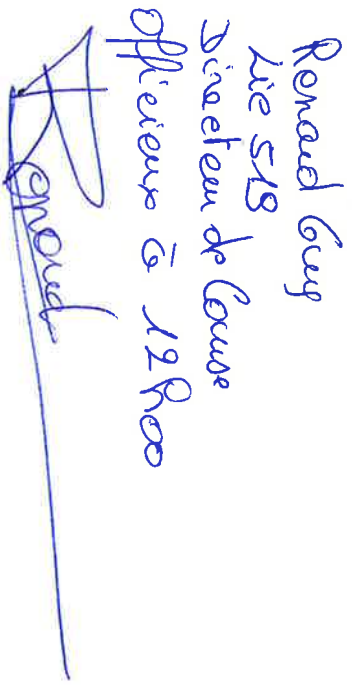 Renaud Guy
Lic 519
Directeur de Course
Officieux à 12h00
Renaud